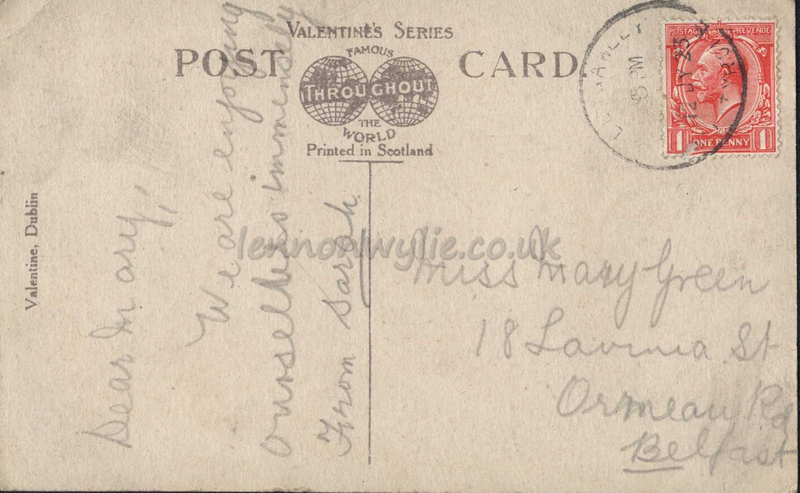 VALENTINE'S SERIES
POST CARD
FAMOUS
THROUGHOUT
THE
WORLD
Printed in Scotland
POSTAGE REVENUE
ONE PENNY
1 1
5 PM
25
Valentine, Dublin
lennonwylie.co.uk
Dear Mary,
We are enjoying
ourselves immensely
From Sarah
Miss Mary Green
18 Lavinia St
Ormeau Rd
Belfast